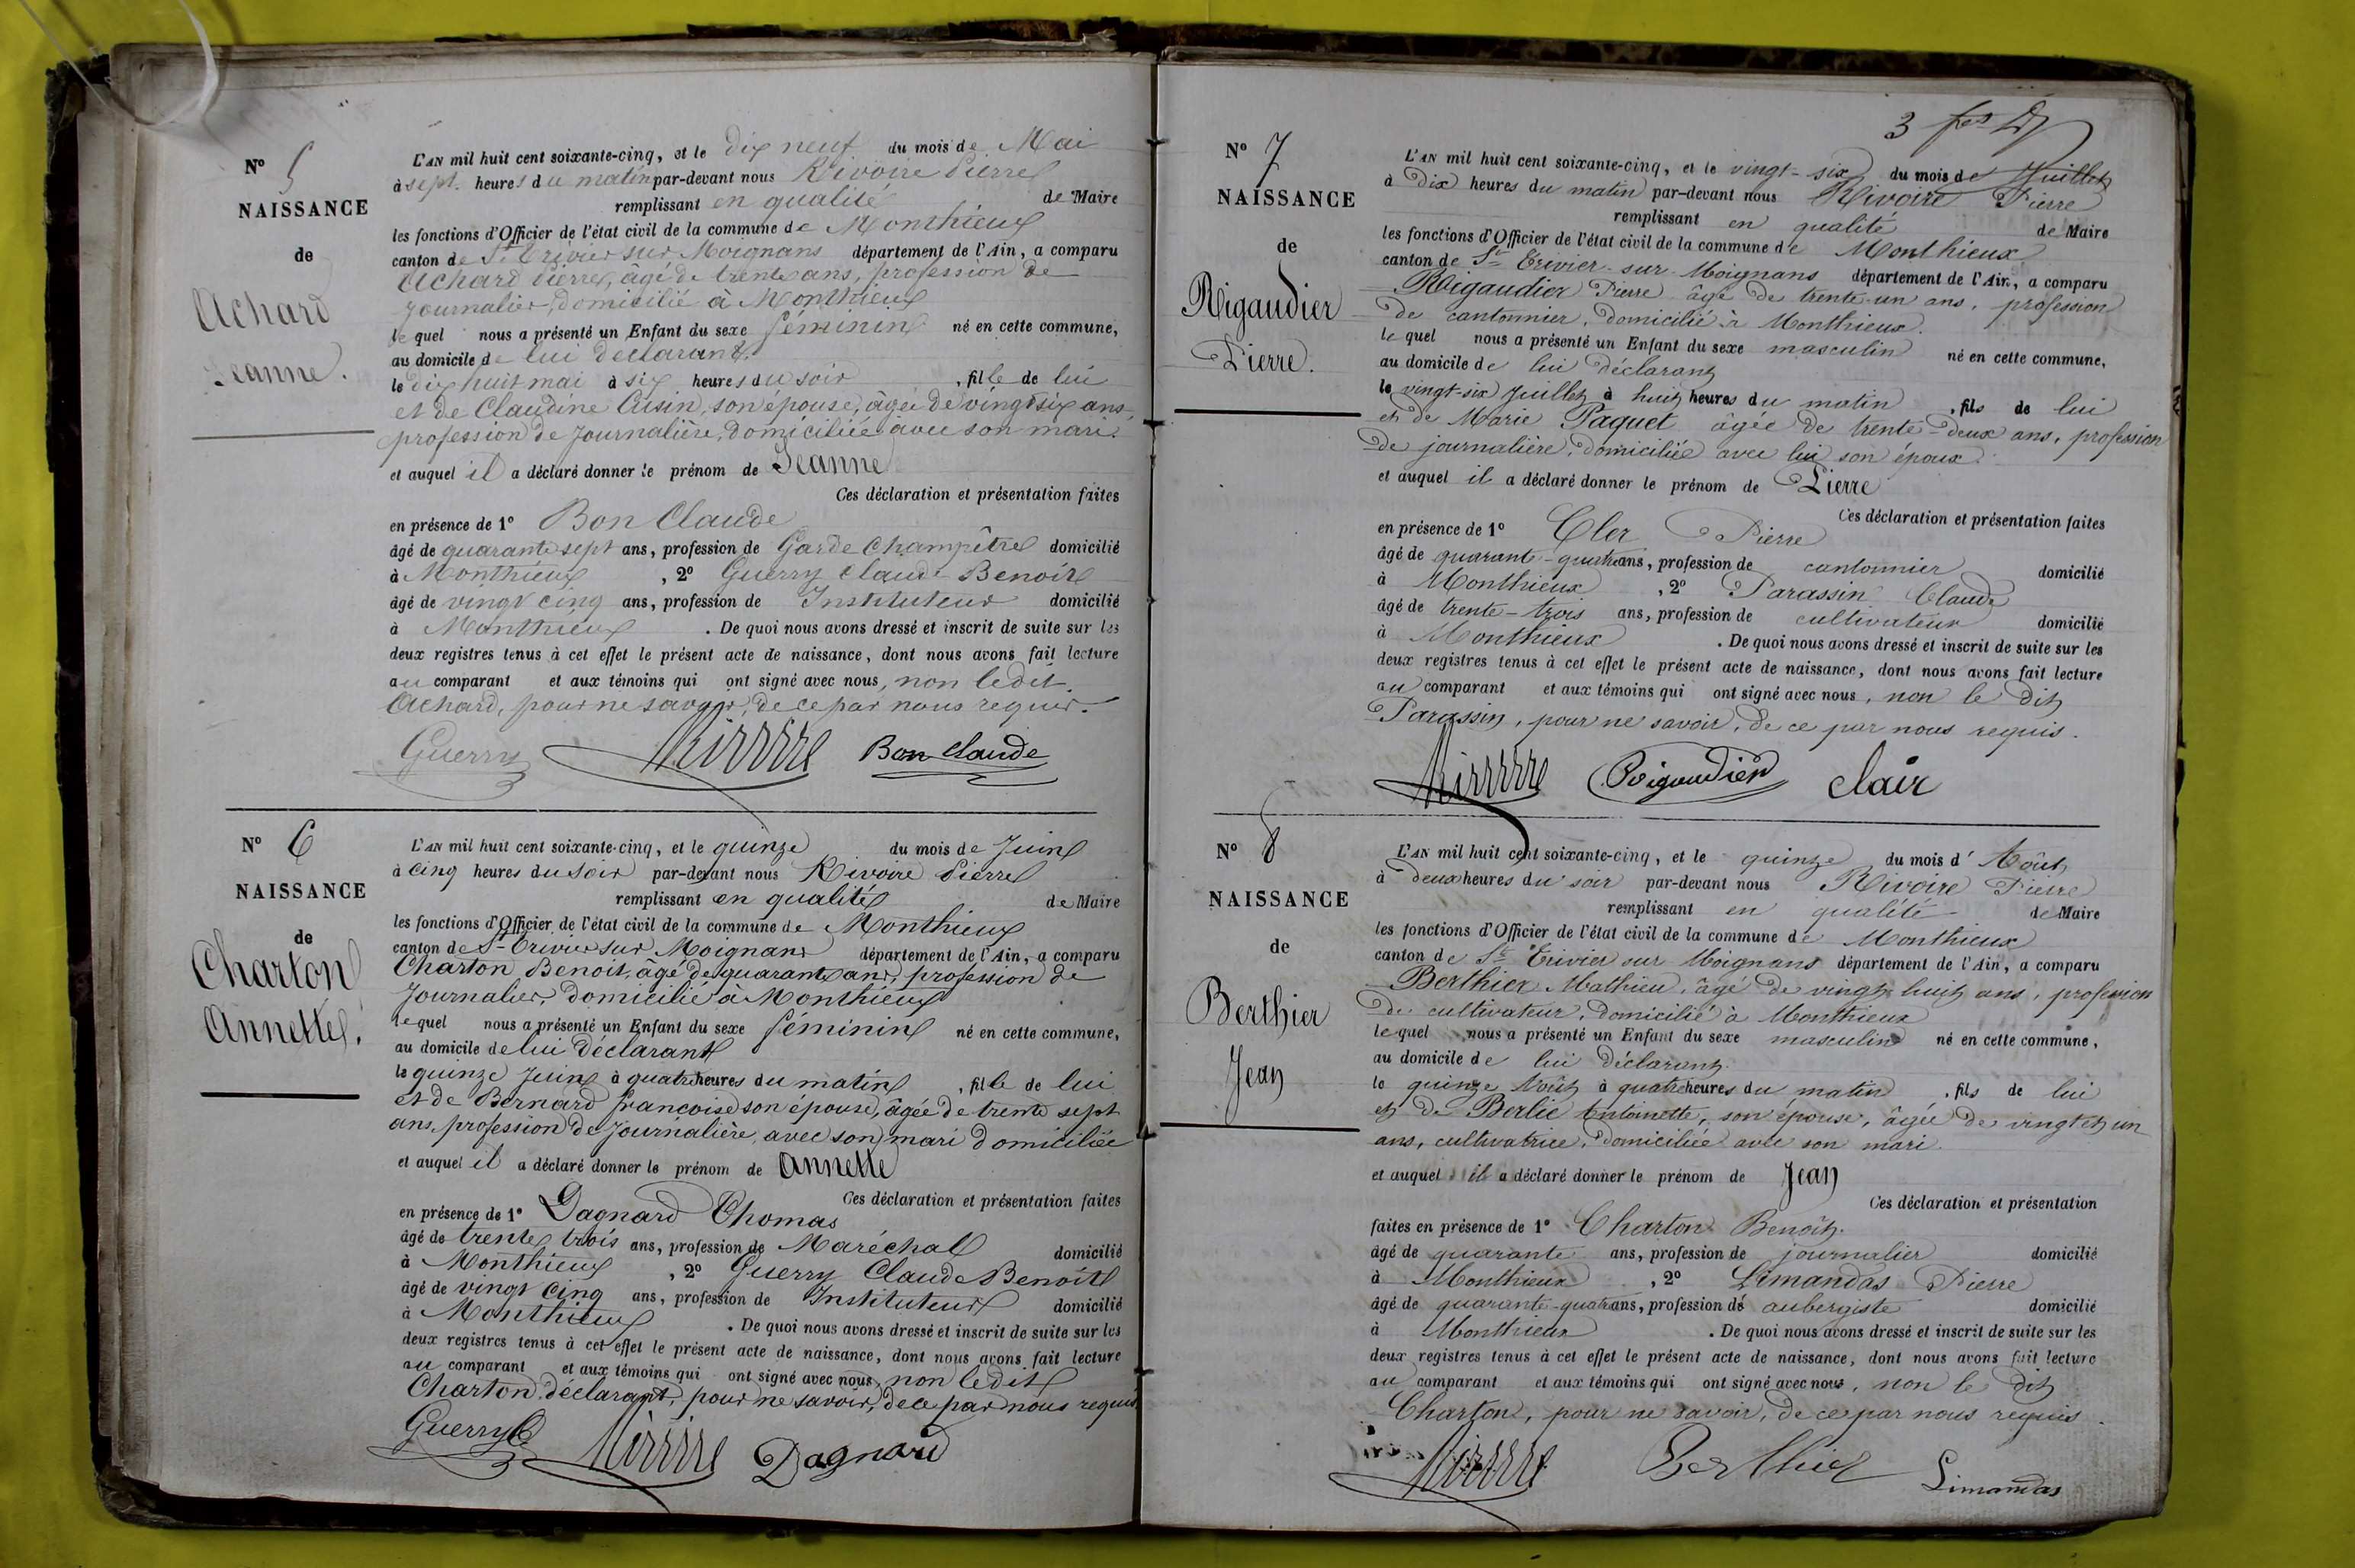 N° 5
NAISSANCE
de
Achard
Jeanne.
L'AN mil huit cent soixante-cinq, et le dix neuf du mois de Mai
à sept heures du matin par-devant nous Rivoire Pierre
remplissant en qualité de Maire
les fonctions d'Officier de l'état civil de la commune de Monthieux
canton de St Trivier sur Moignans département de l'Ain, a comparu
Achard Pierre, âgé de trente ans, profession de
journalier, domicilié à Monthieux
lequel nous a présenté un Enfant du sexe féminin né en cette commune,
au domicile de lui déclarant,
le dix huit mai à six heures du soir, fille de lui
et de Claudine Cusin, son épouse, âgée de vingt six ans,
profession de journalière, domiciliée avec son mari.
et auquel il a déclaré donner le prénom de Jeanne
Ces déclaration et présentation faites
en présence de 1° Bon Claude
âgé de quarante sept ans, profession de Garde Champêtre domicilié
à Monthieux, 2° Guerry Claude Benoît
âgé de vingt cinq ans, profession de Instituteur domicilié
à Monthieux. De quoi nous avons dressé et inscrit de suite sur les
deux registres tenus à cet effet le présent acte de naissance, dont nous avons fait lecture
au comparant et aux témoins qui ont signé avec nous, non ledit
Achard, pour ne savoir, de ce par nous requis.
Guerry Rivoire Bon Claude
N° 6
NAISSANCE
de
Charton
Annette.
L'AN mil huit cent soixante-cinq, et le quinze du mois de Juin
à cinq heures du soir par-devant nous Rivoire Pierre
remplissant en qualité de Maire
les fonctions d'Officier de l'état civil de la commune de Monthieux
canton de St Trivier sur Moignans département de l'Ain, a comparu
Charton Benoit, âgé de quarante ans, profession de
journalier, domicilié à Monthieux
lequel nous a présenté un Enfant du sexe féminin né en cette commune,
au domicile de lui déclarant
le quinze Juin à quatre heures du matin, fille de lui
et de Bernard françoise son épouse, âgée de trente sept
ans, profession de journalière, avec son mari domiciliée
et auquel il a déclaré donner le prénom de Annette
Ces déclaration et présentation faites
en présence de 1° Dagnard Thomas
âgé de trente trois ans, profession de Maréchal domicilié
à Monthieux, 2° Guerry Claude Benoît
âgé de vingt cinq ans, profession de Instituteur domicilié
à Monthieux. De quoi nous avons dressé et inscrit de suite sur les
deux registres tenus à cet effet le présent acte de naissance, dont nous avons fait lecture
au comparant et aux témoins qui ont signé avec nous, non ledit
Charton déclarant, pour ne savoir, de ce par nous requis
Guerry Rivoire Dagnard
3
N° 7
NAISSANCE
de
Rigaudier
Pierre.
L'AN mil huit cent soixante-cinq, et le vingt-six du mois de Juillet
à Dix heures du matin par-devant nous Rivoire Pierre
remplissant en qualité de Maire
les fonctions d'Officier de l'état civil de la commune de Monthieux
canton de St Trivier-sur-Moignans département de l'Ain, a comparu
Rigaudier Pierre âgé de trente-un ans, profession
de cantonnier, domicilié à Monthieux.
lequel nous a présenté un Enfant du sexe masculin né en cette commune,
au domicile de lui déclarant
le vingt-six Juillet à huit heures du matin, fils de lui
et de Marie Paquet âgée de trente-deux ans, profession
de journalière, domiciliée avec lui son époux.
et auquel il a déclaré donner le prénom de Pierre
Ces déclaration et présentation faites
en présence de 1° Cler Pierre
âgé de quarante-quatre ans, profession de cantonnier domicilié
à Monthieux, 2° Parassin Claude
âgé de trente-trois ans, profession de cultivateur domicilié
à Monthieux. De quoi nous avons dressé et inscrit de suite sur les
deux registres tenus à cet effet le présent acte de naissance, dont nous avons fait lecture
au comparant et aux témoins qui ont signé avec nous, non le dit
Parassin, pour ne savoir, de ce par nous requis.
Rivoire Rigaudier Clair
N° 8
NAISSANCE
de
Berthier
Jean
L'AN mil huit cent soixante-cinq, et le quinze du mois d'Août
à deux heures du soir par-devant nous Rivoire Pierre
remplissant en qualité de Maire
les fonctions d'Officier de l'état civil de la commune de Monthieux
canton de St Trivier sur Moignans département de l'Ain, a comparu
Berthier Mathieu, âgé de vingt-huit ans, profession
de cultivateur, domicilié à Monthieux
lequel nous a présenté un Enfant du sexe masculin né en cette commune,
au domicile de lui déclarant
le quinze Août à quatre heures du matin, fils de lui
et de Berlie Antoinette, son épouse, âgée de vingt et un
ans, cultivatrice, domiciliée avec son mari
et auquel il a déclaré donner le prénom de Jean
Ces déclaration et présentation
faites en présence de 1° Charton Benoît
âgé de quarante ans, profession de journalier domicilié
à Monthieux, 2° Limandas Pierre
âgé de quarante-quatre ans, profession de aubergiste domicilié
à Monthieux. De quoi nous avons dressé et inscrit de suite sur les
deux registres tenus à cet effet le présent acte de naissance, dont nous avons fait lecture
au comparant et aux témoins qui ont signé avec nous, non le dit
Charton, pour ne savoir, de ce par nous requis.
Rivoire Berthier Limandas